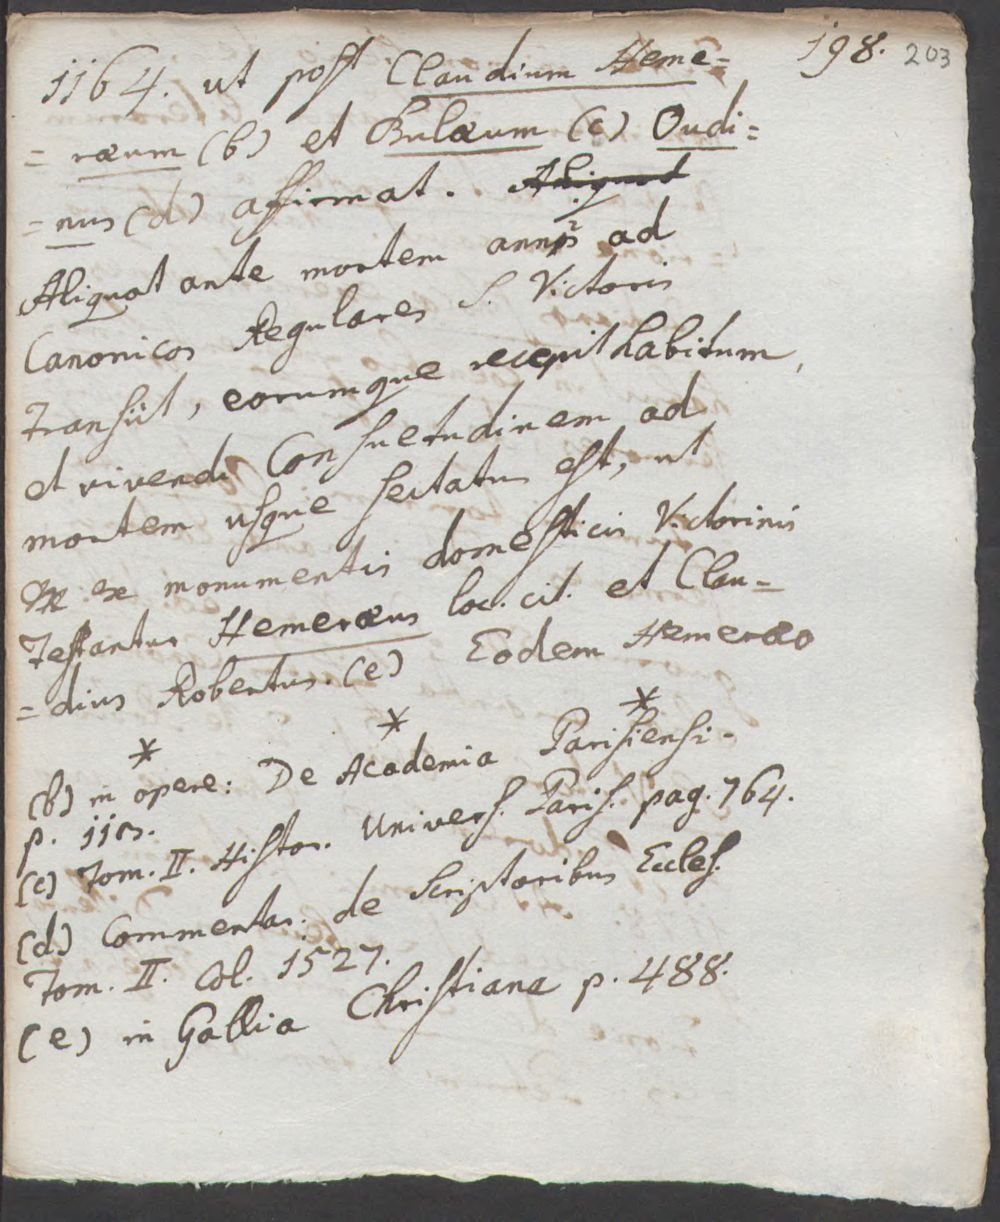 198. 203
1164. ut post Claudium Heme=
=ræum (b) et Bulæum (c) Oudi=
=nus (d) affirmat. Aliquot
Aliquot ante mortem annis ad
Canonicos Regulares S. Victoris
transiit, eorumque recepit habitum,
et vivendi Consuetudinem ad
mortem usque sectatus est, ut
ex monumentis domesticis Victorinis
testantur Hemeræus loc. cit. et Clau=
=dius Robertus. (e) Eodem Hemeræo
* * *
(b) in opere: De Academia Parisiensi.
(c) Tom. II. Histor. Univers. Paris. pag. 764.
(d) Commentar. de Scriptoribus Eccles.
Tom. II. Col. 1527.
(e) in Gallia Christiana p. 488.